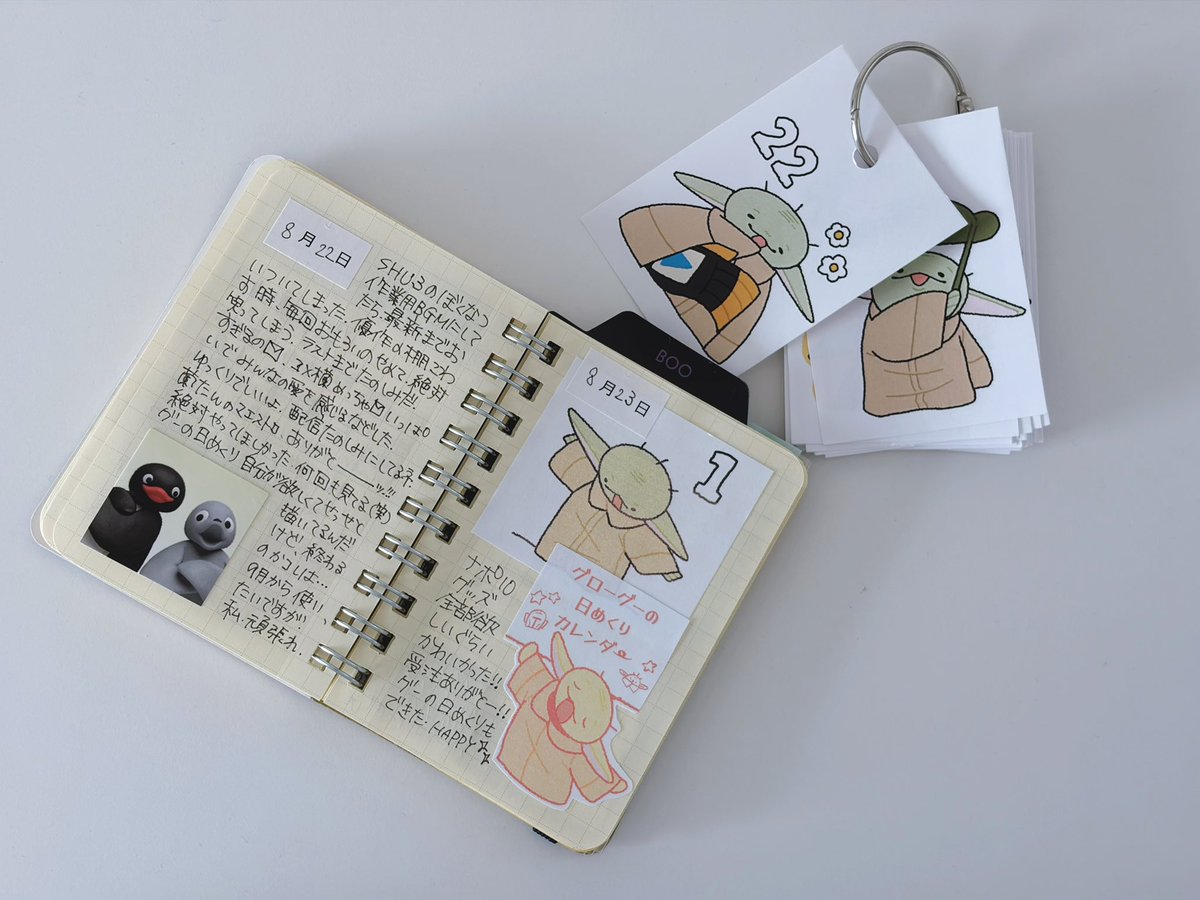 8月22日
SHU3のぼくなつ
作業用BGMにして
たら、最新までお
いついてしまった。優作の棚こわ
お時、毎回おもろいのやめて、絶対
鬼ってしまう。ラストまでたのしみだ。
すぎるの
いでみんなの愛を感じるなどした。
ゆっくりでいいよ、配信たのしみにしてるネ、
葉たんのマエストロ、ありがとーーーッ!!
絶対やってほしかった。何回も見る(笑)
グーの日めくり自分が欲しくてせっせと
描いてるんだ
けど、終わる
のかコレは…
9月から使い
たいですが、、
私、頑張れ
8月23日
1
ナポD10
グッズ
全部欲
しいぐらい
かわいかった!!
ありがとー!!
グーの日めくりも
できた。HAPPY☆
グローグーの
日めくり
カレンダー
BOO
22